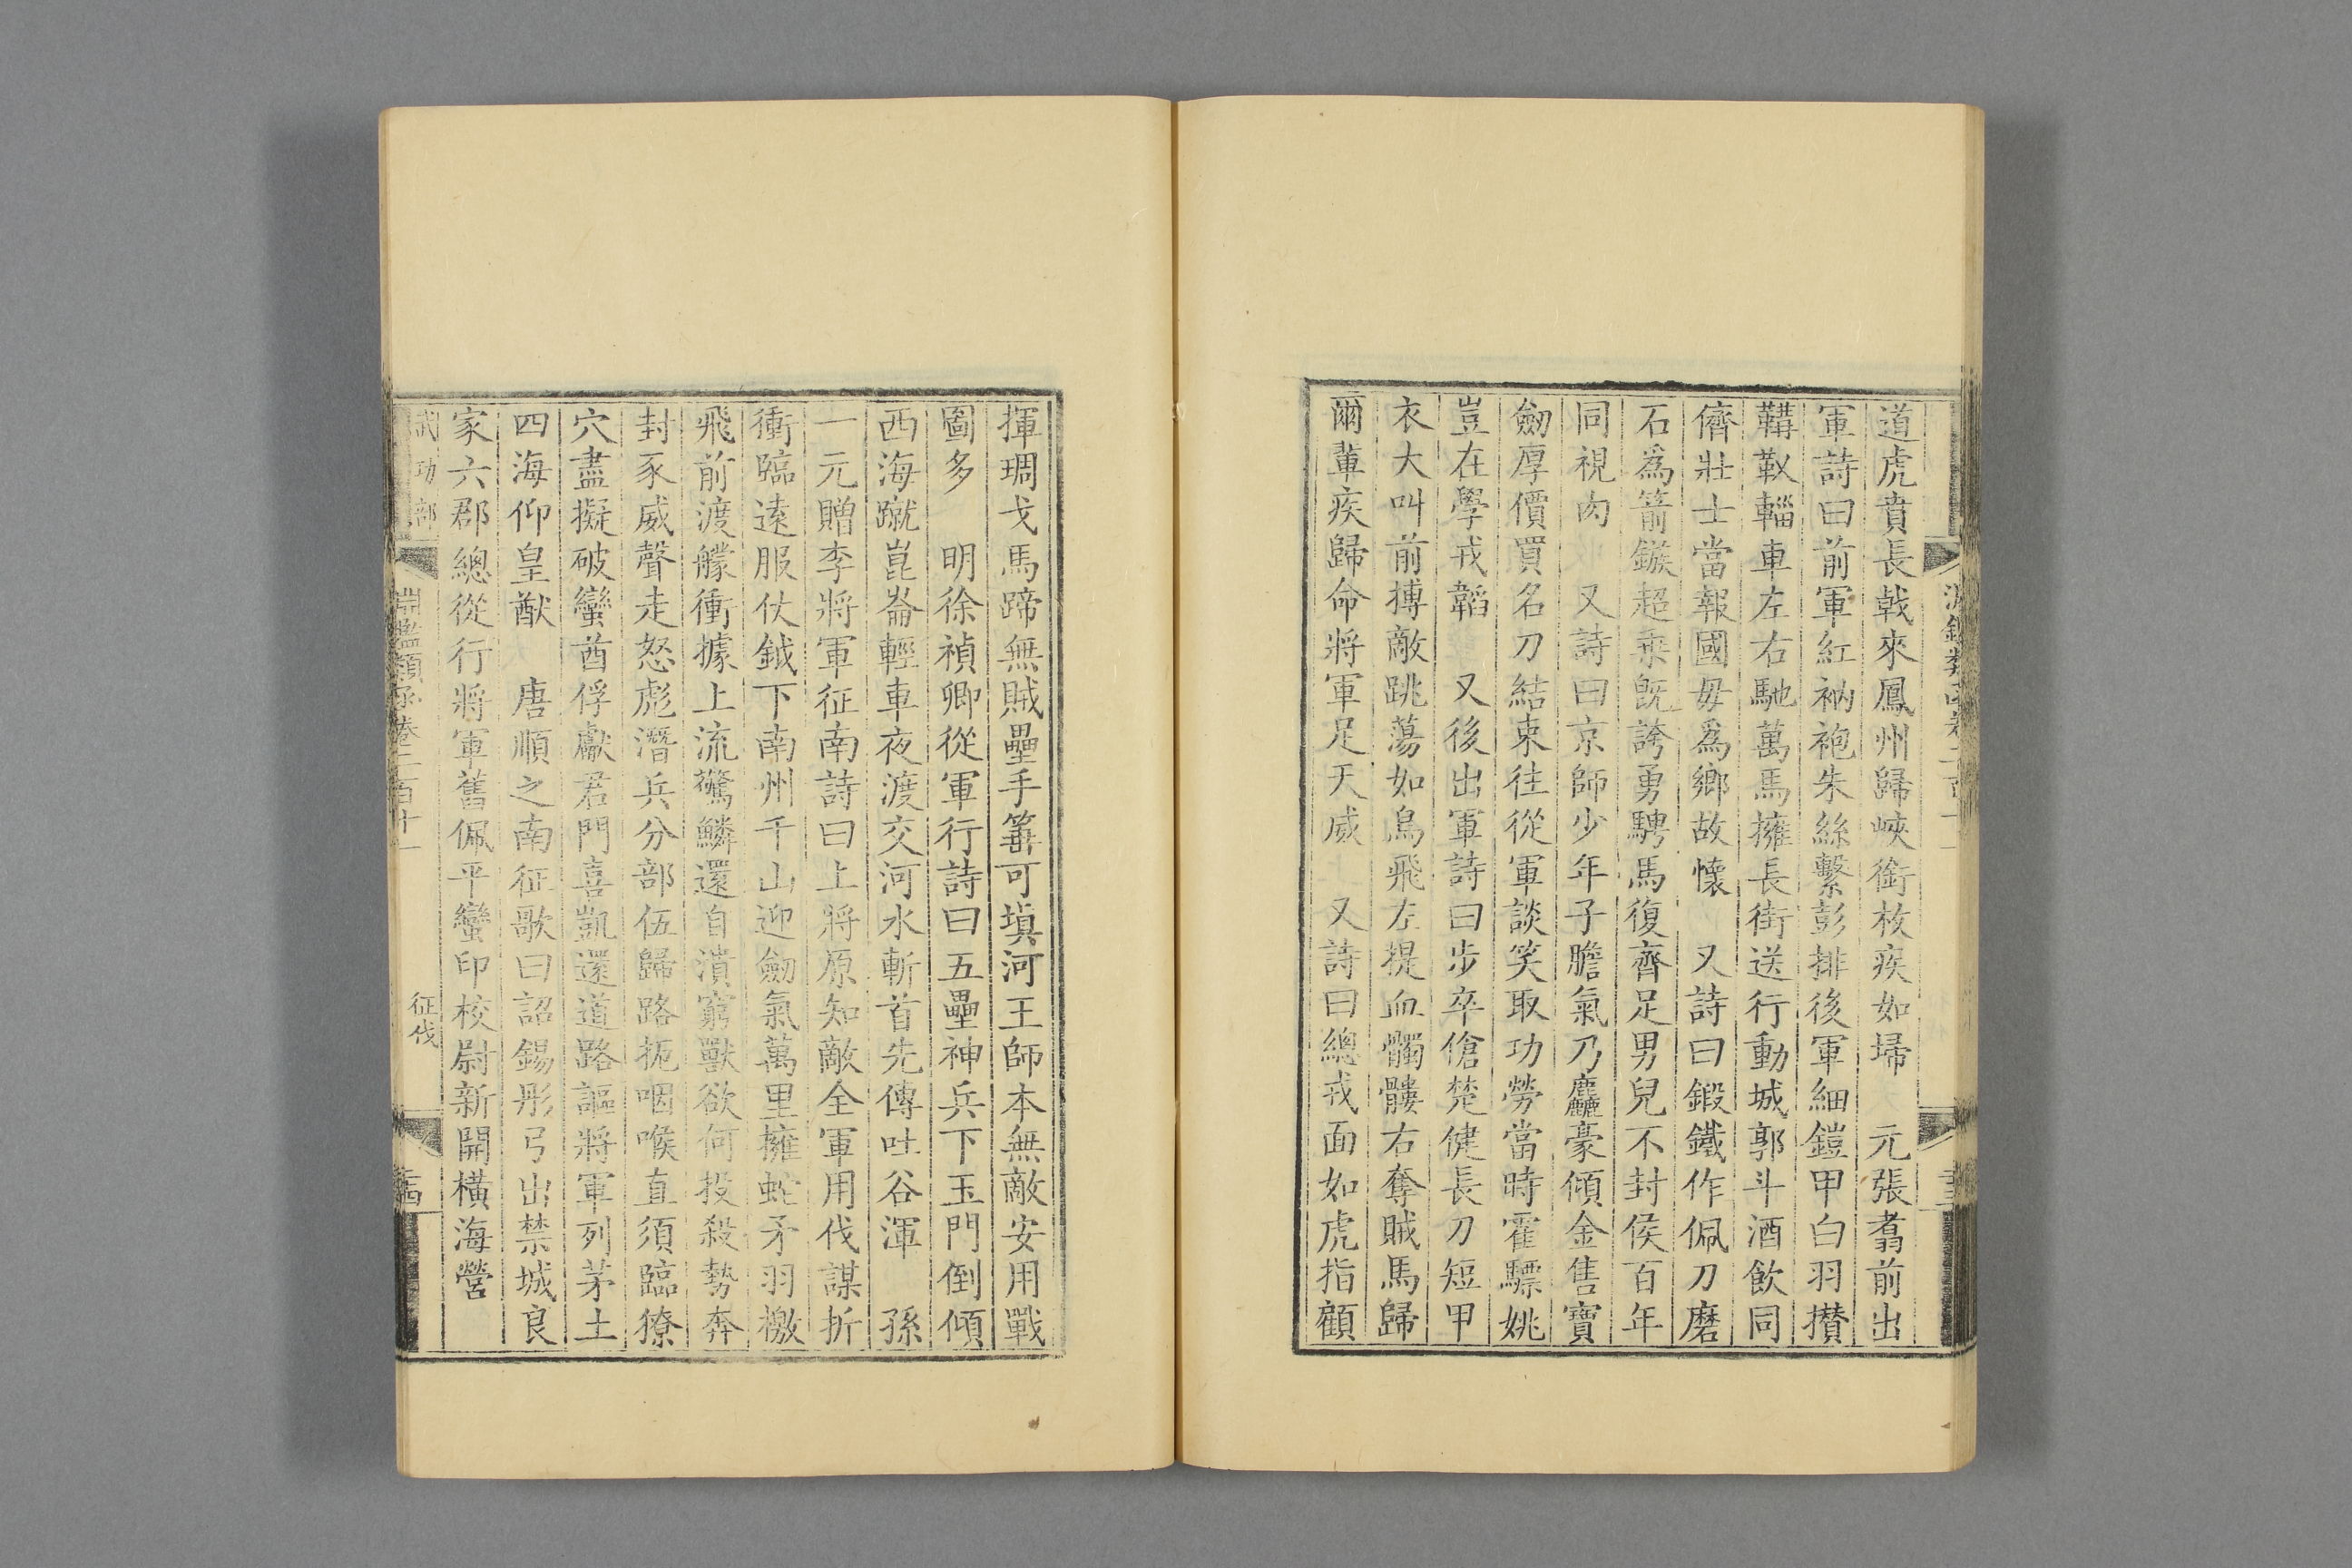 道虎賁長戟來鳳州歸峽銜枚疾如埽　元張翥前出
軍詩曰前軍紅衲袍朱絲繫彭排後軍細鎧甲白羽攢
鞲靫輜車左右馳萬馬擁長街送行動城郭斗酒飲同
儕壯士當報國毋爲鄉故懷　又詩曰鍛鐵作佩刀磨
石爲箭鏃超乘旣誇勇騁馬復齊足男兒不封侯百年
同視肉　又詩曰京師少年子膽氣乃麤豪傾金售寶
劒厚價買名刀結束往從軍談笑取功勞當時霍驃姚
豈在學戎韜　又後出軍詩曰步卒傖楚健長刀短甲
衣大叫前搏敵跳蕩如鳥飛左提血髑髏右奪賊馬歸
爾輩疾歸命將軍足天威　又詩曰總戎面如虎指顧
揮琱戈馬蹄無賊壘手篝可塡河王師本無敵安用戰
圖多　明徐禎卿從軍行詩曰五壘神兵下玉門倒傾
西海蹴崑崙輕車夜渡交河水斬首先傳吐谷渾　孫
一元贈李將軍征南詩曰上將原知敵全軍用伐謀折
衝臨遠服仗鉞下南州千山迎劒氣萬里擁蛇矛羽檄
飛前渡艨衝據上流驚鱗還自潰窮獸欲何投殺勢奔
封豕威聲走怒彪潛兵分部伍歸路扼咽喉直須臨獠
穴盡擬破蠻酋俘獻君門喜凱還道路謳將軍列茅土
四海仰皇猷　唐順之南征歌曰詔錫彤弓出禁城良
家六郡總從行將軍舊佩平蠻印校尉新開橫海營
武功部　淵鑑類函卷二百十一　征伐